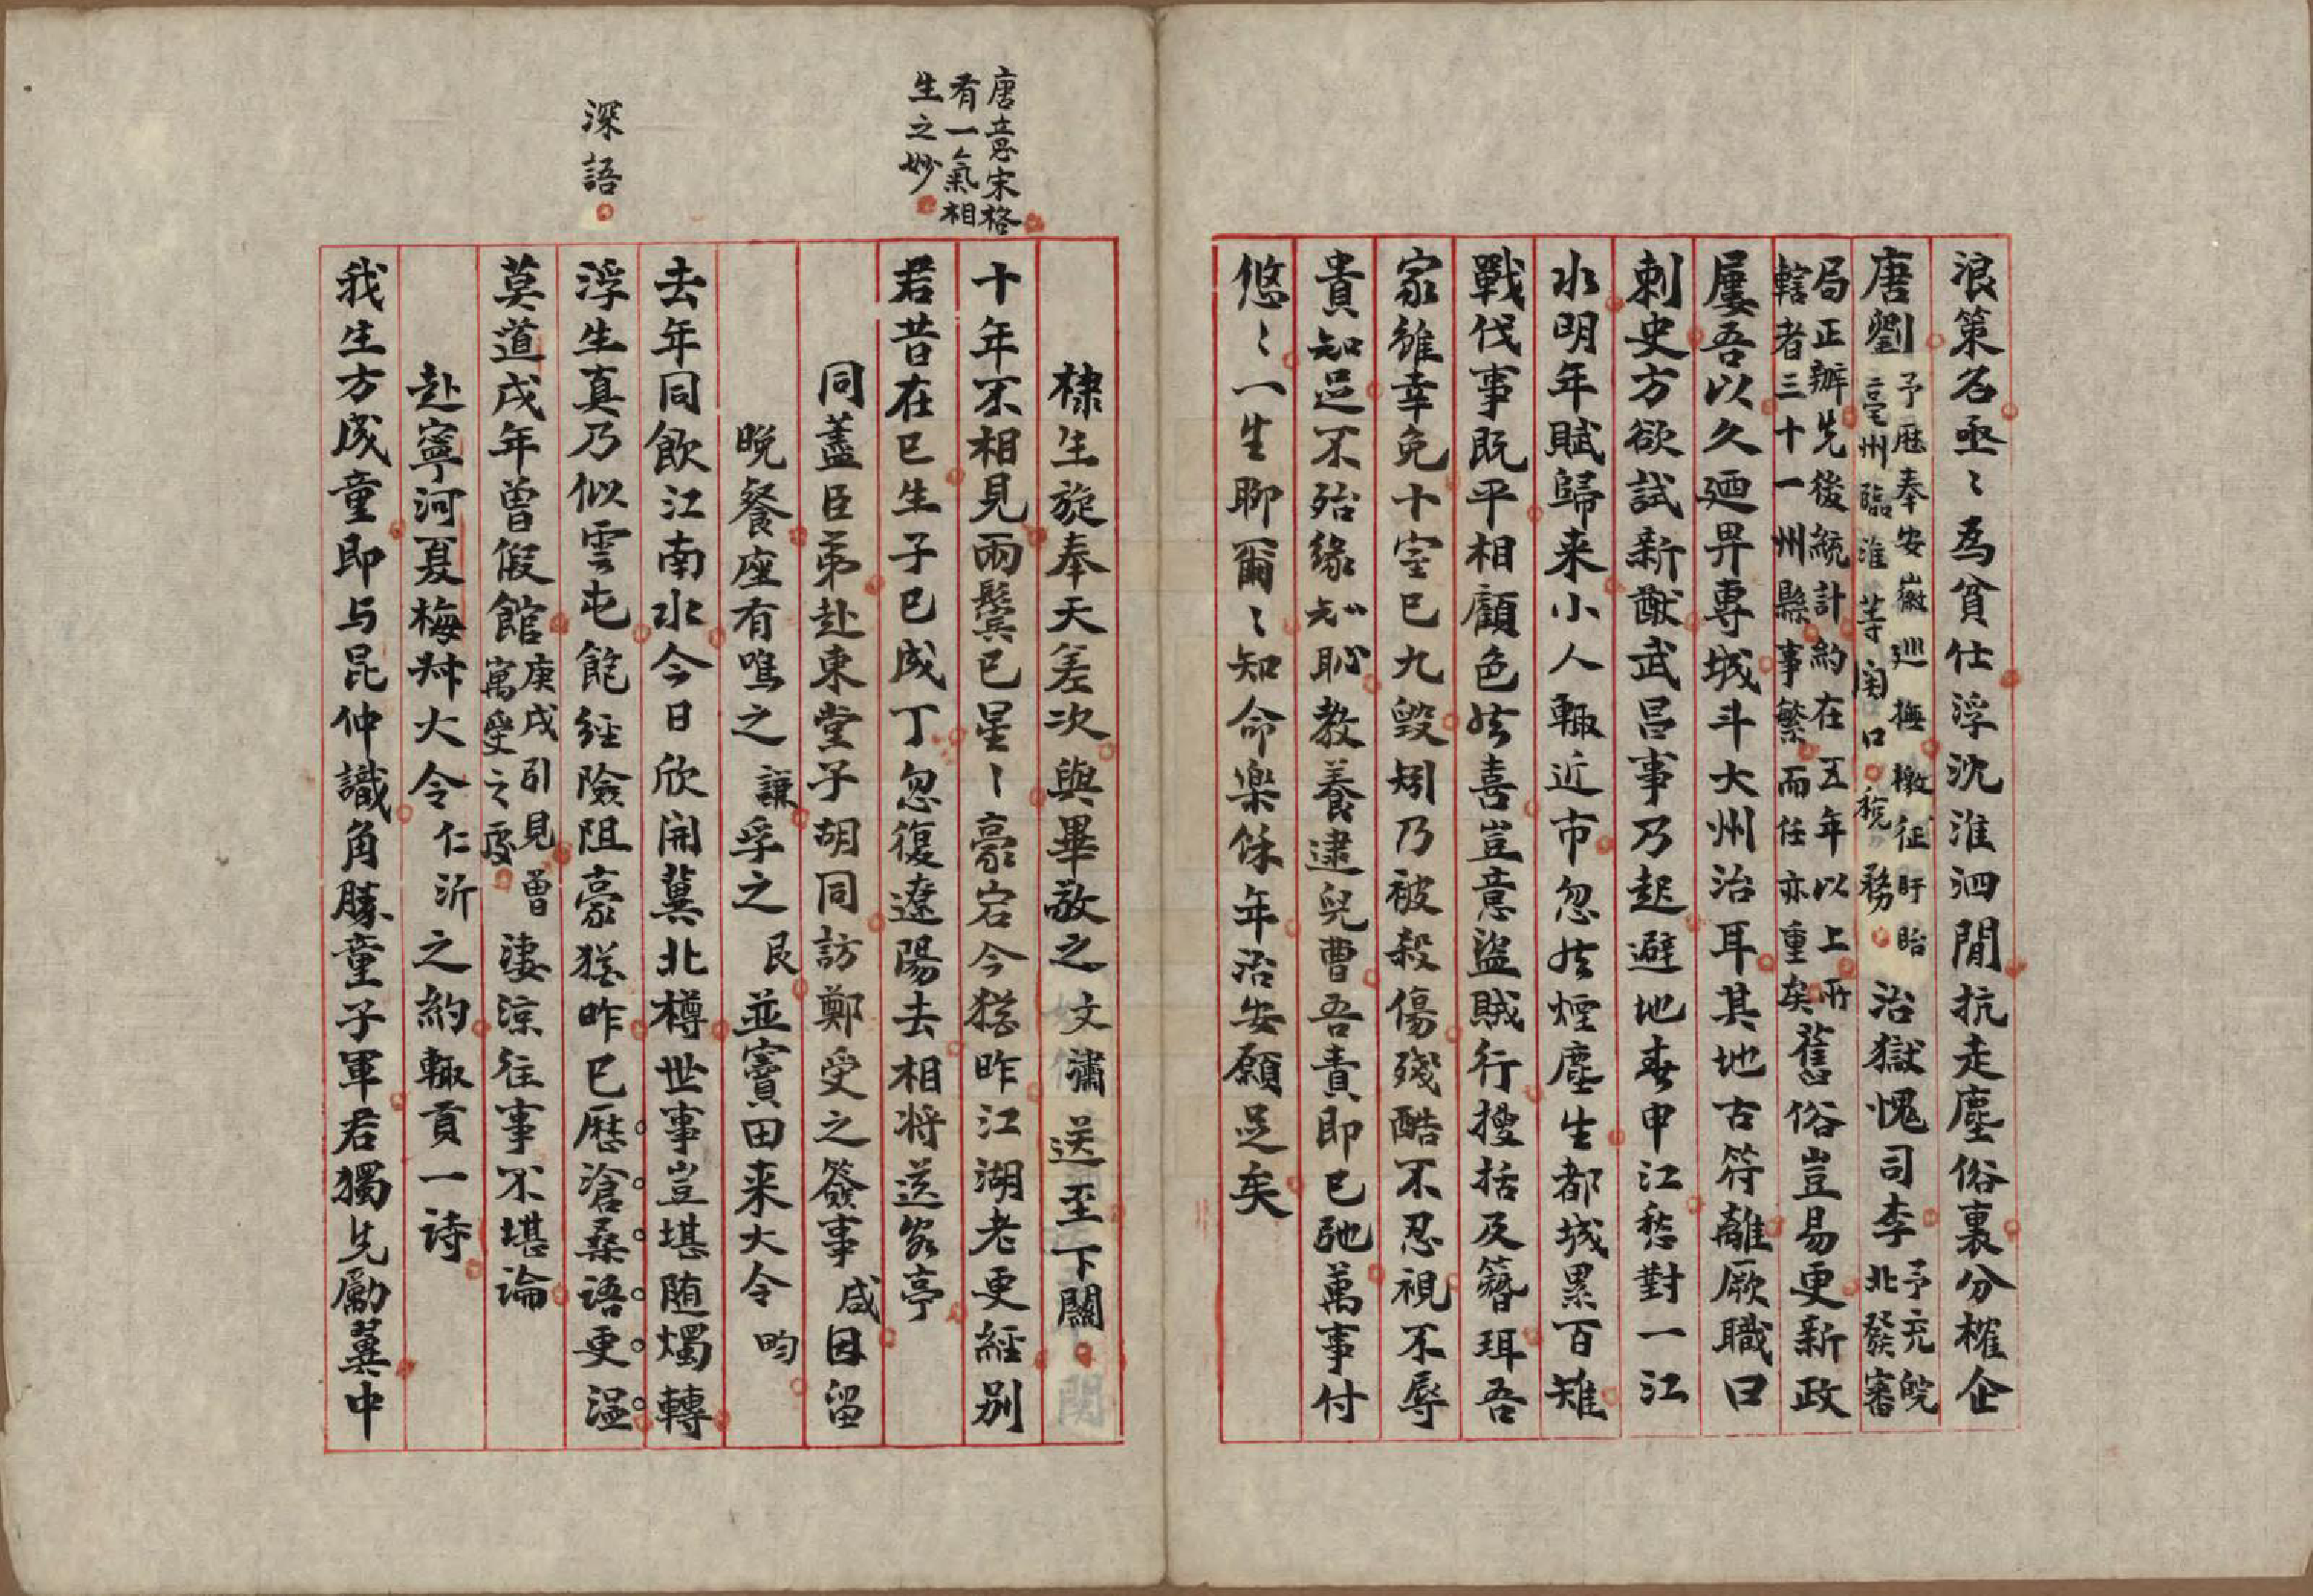 浪策名亟〻為貧仕浮沈淮泗閒抗走塵俗裏分榷企
唐劉
予歷奉安徽巡撫檄征盱眙
亳州臨淮等関口稅務
治獄愧司李
予充皖
北發審
局正辦先後統計約在五年以上所
轄者三十一州縣事繁而任亦重矣
舊俗豈易更新政
屢吾以久廼畀專城斗大州治耳其地古符離厥職曰
刺史方欲試新猷武昌事乃起避地春申江愁對一江
水明年賦歸来小人輙近市忽然煙塵生都城累百雉
戰伐事既平相顧色然喜豈意盜賊行搜括及簪珥吾
家雖幸免十室已九毀矧乃被殺傷殘酷不忍視不辱
貴知足不殆緣知恥教養逮兒曹吾責即已弛萬事付
悠〻一生聊爾〻知命樂餘年治安願足矣
唐意宋格
有一氣相
生之妙
深語
棣生旋奉天差次與畢敬之文潚送至下關
十年不相見兩鬢已星〻豪宕今猶昨江湖老更經别
君昔在巳生子已成丁忽復遼陽去相将送客亭
同蓋臣弟赴東堂子胡同訪鄭受之簽事咸因留
晩餐座有鳴之謙孚之艮並寶田来大令昀
去年同飲江南水今日欣開冀北樽世事豈堪随燭轉
浮生真乃似雲屯飽經險阻豪猶昨已歷滄桑語更温
莫道戌年曾假館
庚戌引見曾
寓受之處
淒涼往事不堪論
赴寧河夏梅叔大令仁沂之約輙貢一詩
我生方成童即与昆仲識角勝童子軍君獨先勵翼中